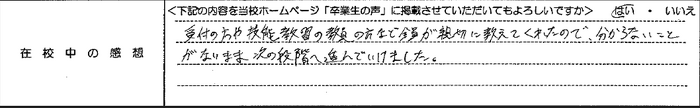 <下記の内容を当校ホームページ「卒業生の声」に掲載させていただいてもよろしいですか> はい ・ いいえ
在校中の感想
受付の方や技能教習の教員の方など全員が親切に教えてくれたので、分からないこと
がないまま次の段階へ進んでいけました。